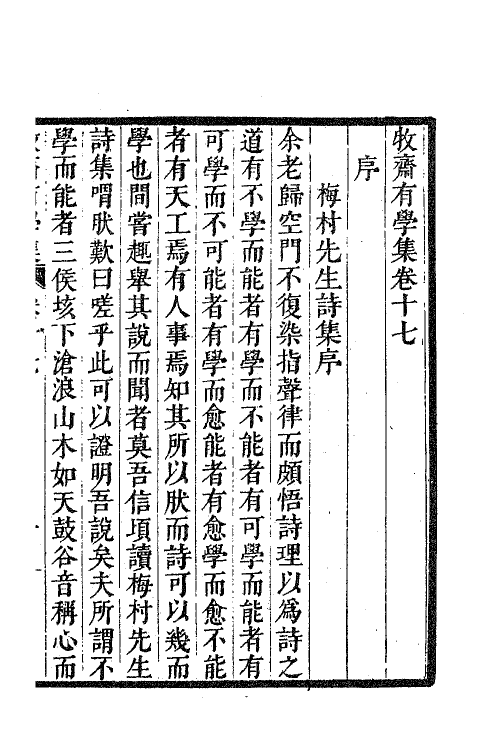 牧齋有學集卷十七
序
梅村先生詩集序
余老歸空門不復染指聲律而頗悟詩理以爲詩之
道有不學而能者有學而不能者有可學而能者有
可學而不可能者有學而愈能者有愈學而愈不能
者有天工焉有人事焉知其所以肰而詩可以幾而
學也間嘗趣舉其說而聞者莫吾信頃讀梅村先生
詩集喟肰歎曰嗟乎此可以證明吾說矣夫所謂不
學而能者三侯垓下滄浪山木如天鼓谷音稱心而